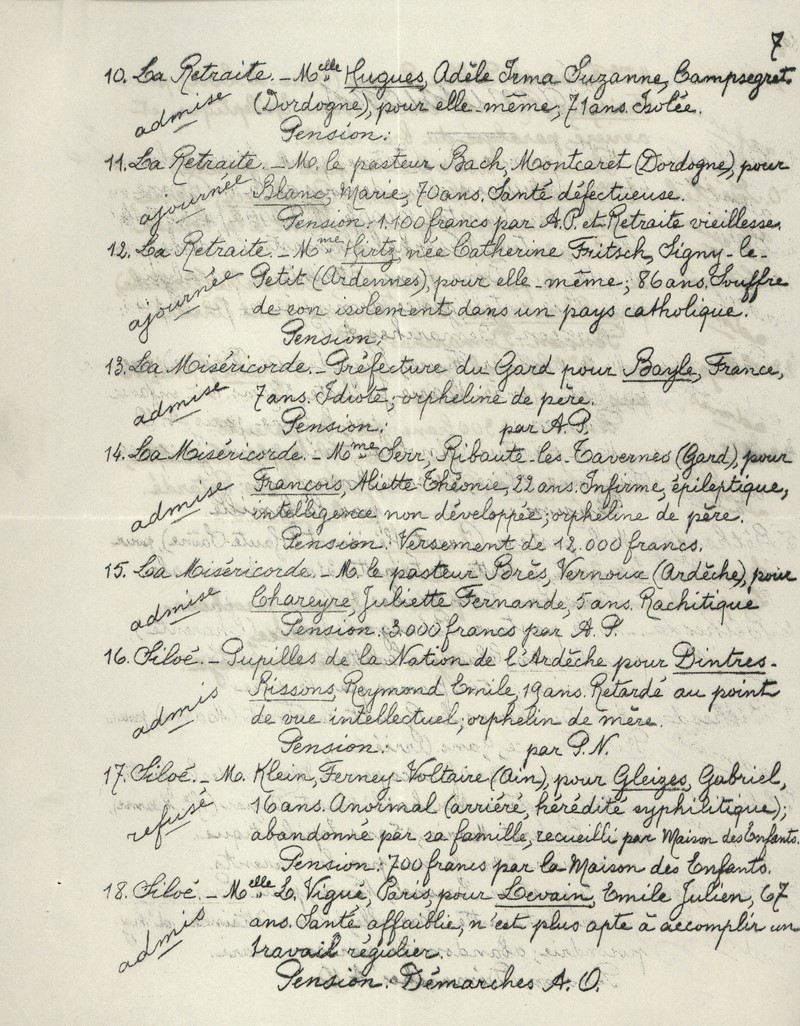 7
10. La Retraite. - Melle Hugues, Adèle Irma Suzanne, Campsegret
admise
(Dordogne), pour elle-même; 71 ans. Isolée.
Pension:
11. La Retraite. - M. le pasteur Bach, Montcaret (Dordogne), pour
ajournée
Blanc, Marie, 70 ans. Santé défectueuse.
Pension: 1.100 francs par A.P. et Retraite vieillesse.
12. La Retraite. - Mme Hirtz née Catherine Fritsch, Signy-le-
ajournée
Petit (Ardennes), pour elle-même; 86 ans. Souffre
de son isolement dans un pays catholique.
Pension:
13. La Miséricorde. - Préfecture du Gard pour Bayle, France,
admise
7 ans. Idiote; orpheline de père.
Pension: par A.P.
14. La Miséricorde. - Mme Serr, Ribaute-les-Tavernes (Gard), pour
admise
François, Aliette Théonie, 22 ans. Infirme, épileptique,
intelligence non développée; orpheline de père.
Pension: Versement de 12.000 francs.
15. La Miséricorde. - M. le pasteur Brès, Vernoux (Ardèche), pour
admise
Chareyre, Juliette Fernande, 5 ans. Rachitique
Pension: 3.000 francs par A.P.
16. Siloé. - Pupilles de la Nation de l'Ardèche pour Dintres-
admis
Rissons, Reymond Emile, 19 ans. Retardé au point
de vue intellectuel; orphelin de mère.
Pension: par P.N.
17. Siloé. - M. Klein, Ferney-Voltaire (Ain), pour Gleizes, Gabriel,
refusé
16 ans. Anormal (arriéré, hérédité syphilitique);
abandonné par sa famille, recueilli par Maison des Enfants.
Pension: 700 francs par la Maison des Enfants.
18. Siloé. - Melle L. Vigué, Paris pour Levain, Emile Julien, 67
admis
ans. Santé affaiblie, n'est plus apte à accomplir un
travail régulier.
Pension: Démarches A.O.